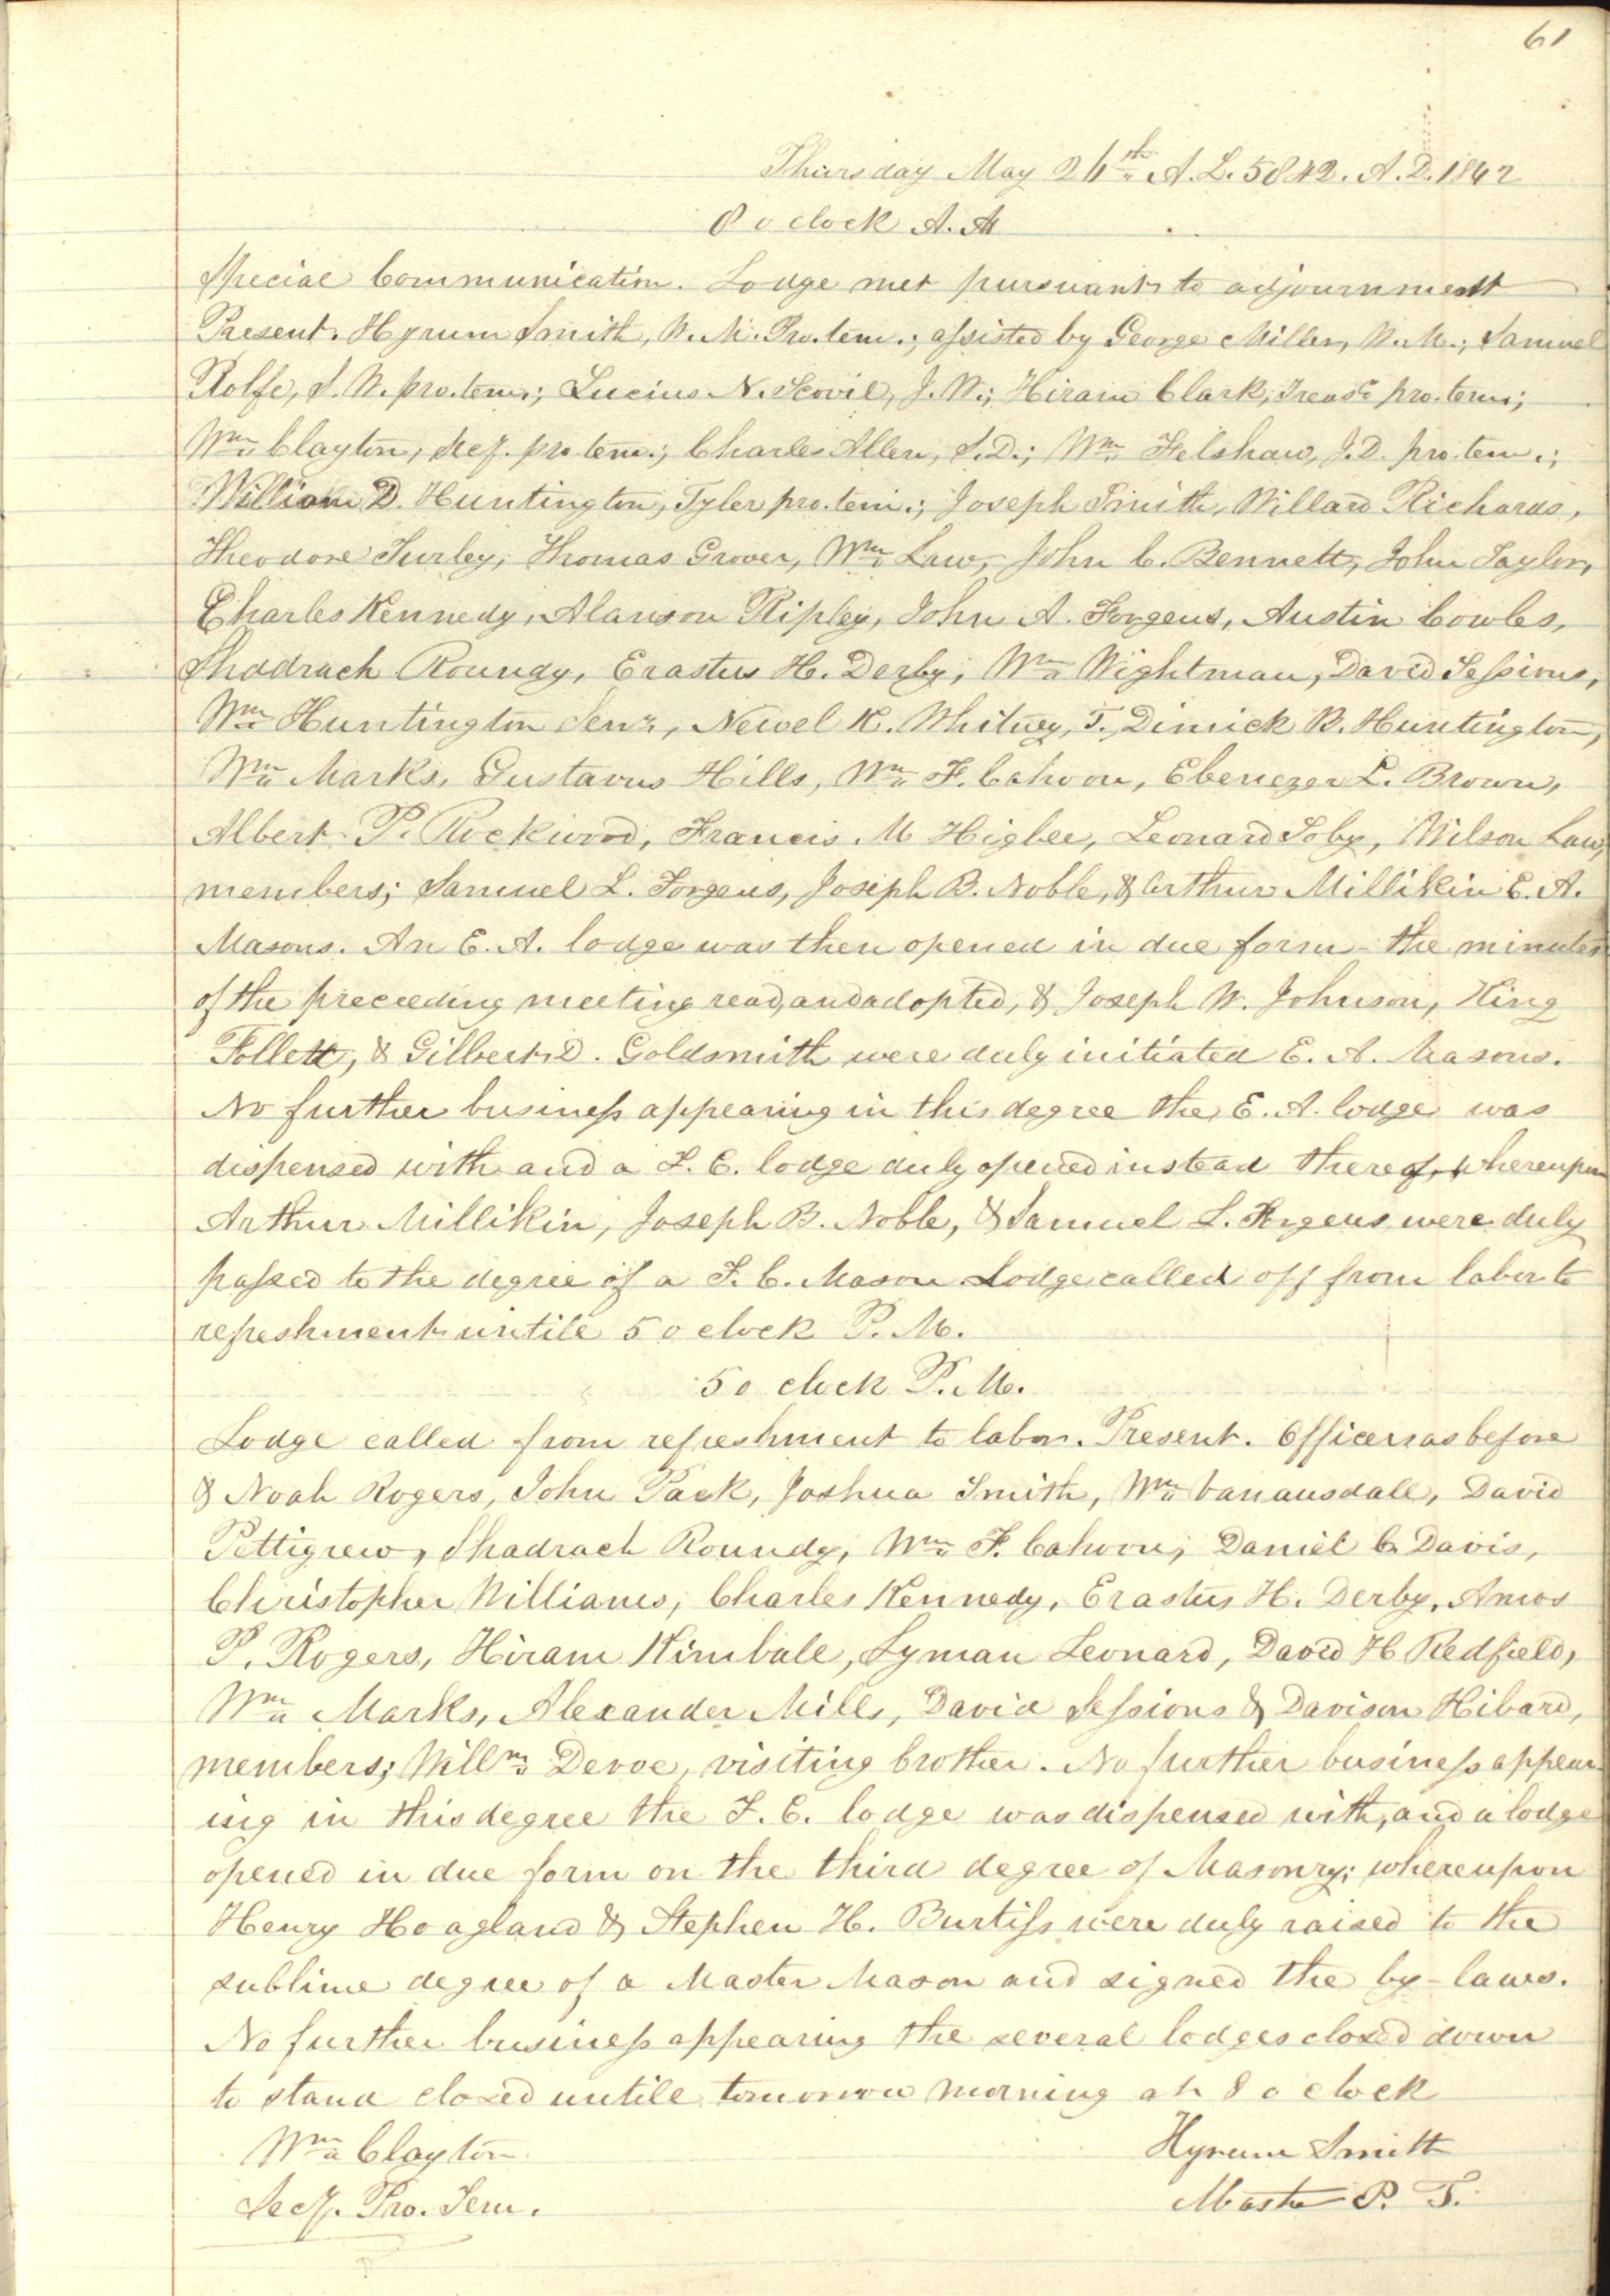 61
Thursday May 26th A. L. 5842. A. D. 1842
8 o clock A. M
Special Communication. Lodge met pursuant to adjournment
Present. Hyrum Smith, W. M. Pro. tem.; assisted by George Miller, W. M.; Samuel
Rolfe, S. W. pro. tem.; Lucius N. Scovil, J. W.; Hiram Clark, Treasr pro. tem;
Wm Clayton, Secy. pro tem.; Charles Allen, S. D.; Wm Felshaw, J. D. pro. tem.;
William D. Huntington, Tyler pro. tem.; Joseph Smith, Willard Richards,
Theodore Turley, Thomas Grover, Wm Law, John C. Bennett, John Taylor,
Charles Kennedy, Alanson Ripley, John A. Forgeus, Austin Cowles,
Shadrach Roundy, Erastus H. Derby, Wm Wightman, David Sessions,
Wm Huntington Senr, Newel K. Whitney, T., Dimick B. Huntington,
Wm Marks, Gustavus Hills, Wm F. Cahoon, Ebenezer L. Brown,
Albert P. Rockwood, Francis M Higbee, Leonard Soby, Wilson Law,
members; Samuel L. Forgeus, Joseph B. Noble, & Arthur Millikin E. A.
Masons. An E. A. lodge was then opened in due form the minutes
of the preceeding meeting read, and adopted, & Joseph W. Johnson, King
Follett, & Gilbert D. Goldsmith were duly initiated E. A. Masons.
No further business appearing in this degree the E. A. lodge was
dispensed with and a F. C. lodge duly opened instead thereof, whereupon
Arthur Millikin, Joseph B. Noble, & Samuel L. Forgeus were duly
passed to the degree of a F. C. Mason Lodge called off from labor to
refreshment untile 5 o clock P. M.
5 o clock P. M.
Lodge called from refreshment to labor. Present. Officers as before
& Noah Rogers, John Pack, Joshua Smith, Wm Vanausdall, David
Pettigrew, Shadrach Roundy, Wm F. Cahoon, Daniel C. Davis,
Christopher Williams, Charles Kennedy, Erastus H. Derby, Amos
P. Rogers, Hiram Kimbale, Lyman Leonard, David H Redfield,
Wm Marks, Alexander Mills, David Sessions & Davison Hibard,
members; Willm Devoe, visiting brother. No further business appear-
ing in this degree the F. C. lodge was dispensed with, and a lodge
opened in due form on the third degree of Masonry; whereupon
Henry Hoagland & Stephen H. Burtiss were duly raised to the
sublime degree of a Master Mason and signed the by-laws.
No further business appearing the several lodges closed down
to stand closed untile tomorrow morning at 8 o clock
Wm Clayton Hyrum Smith
Secy. Pro. Tem. Master P. T.